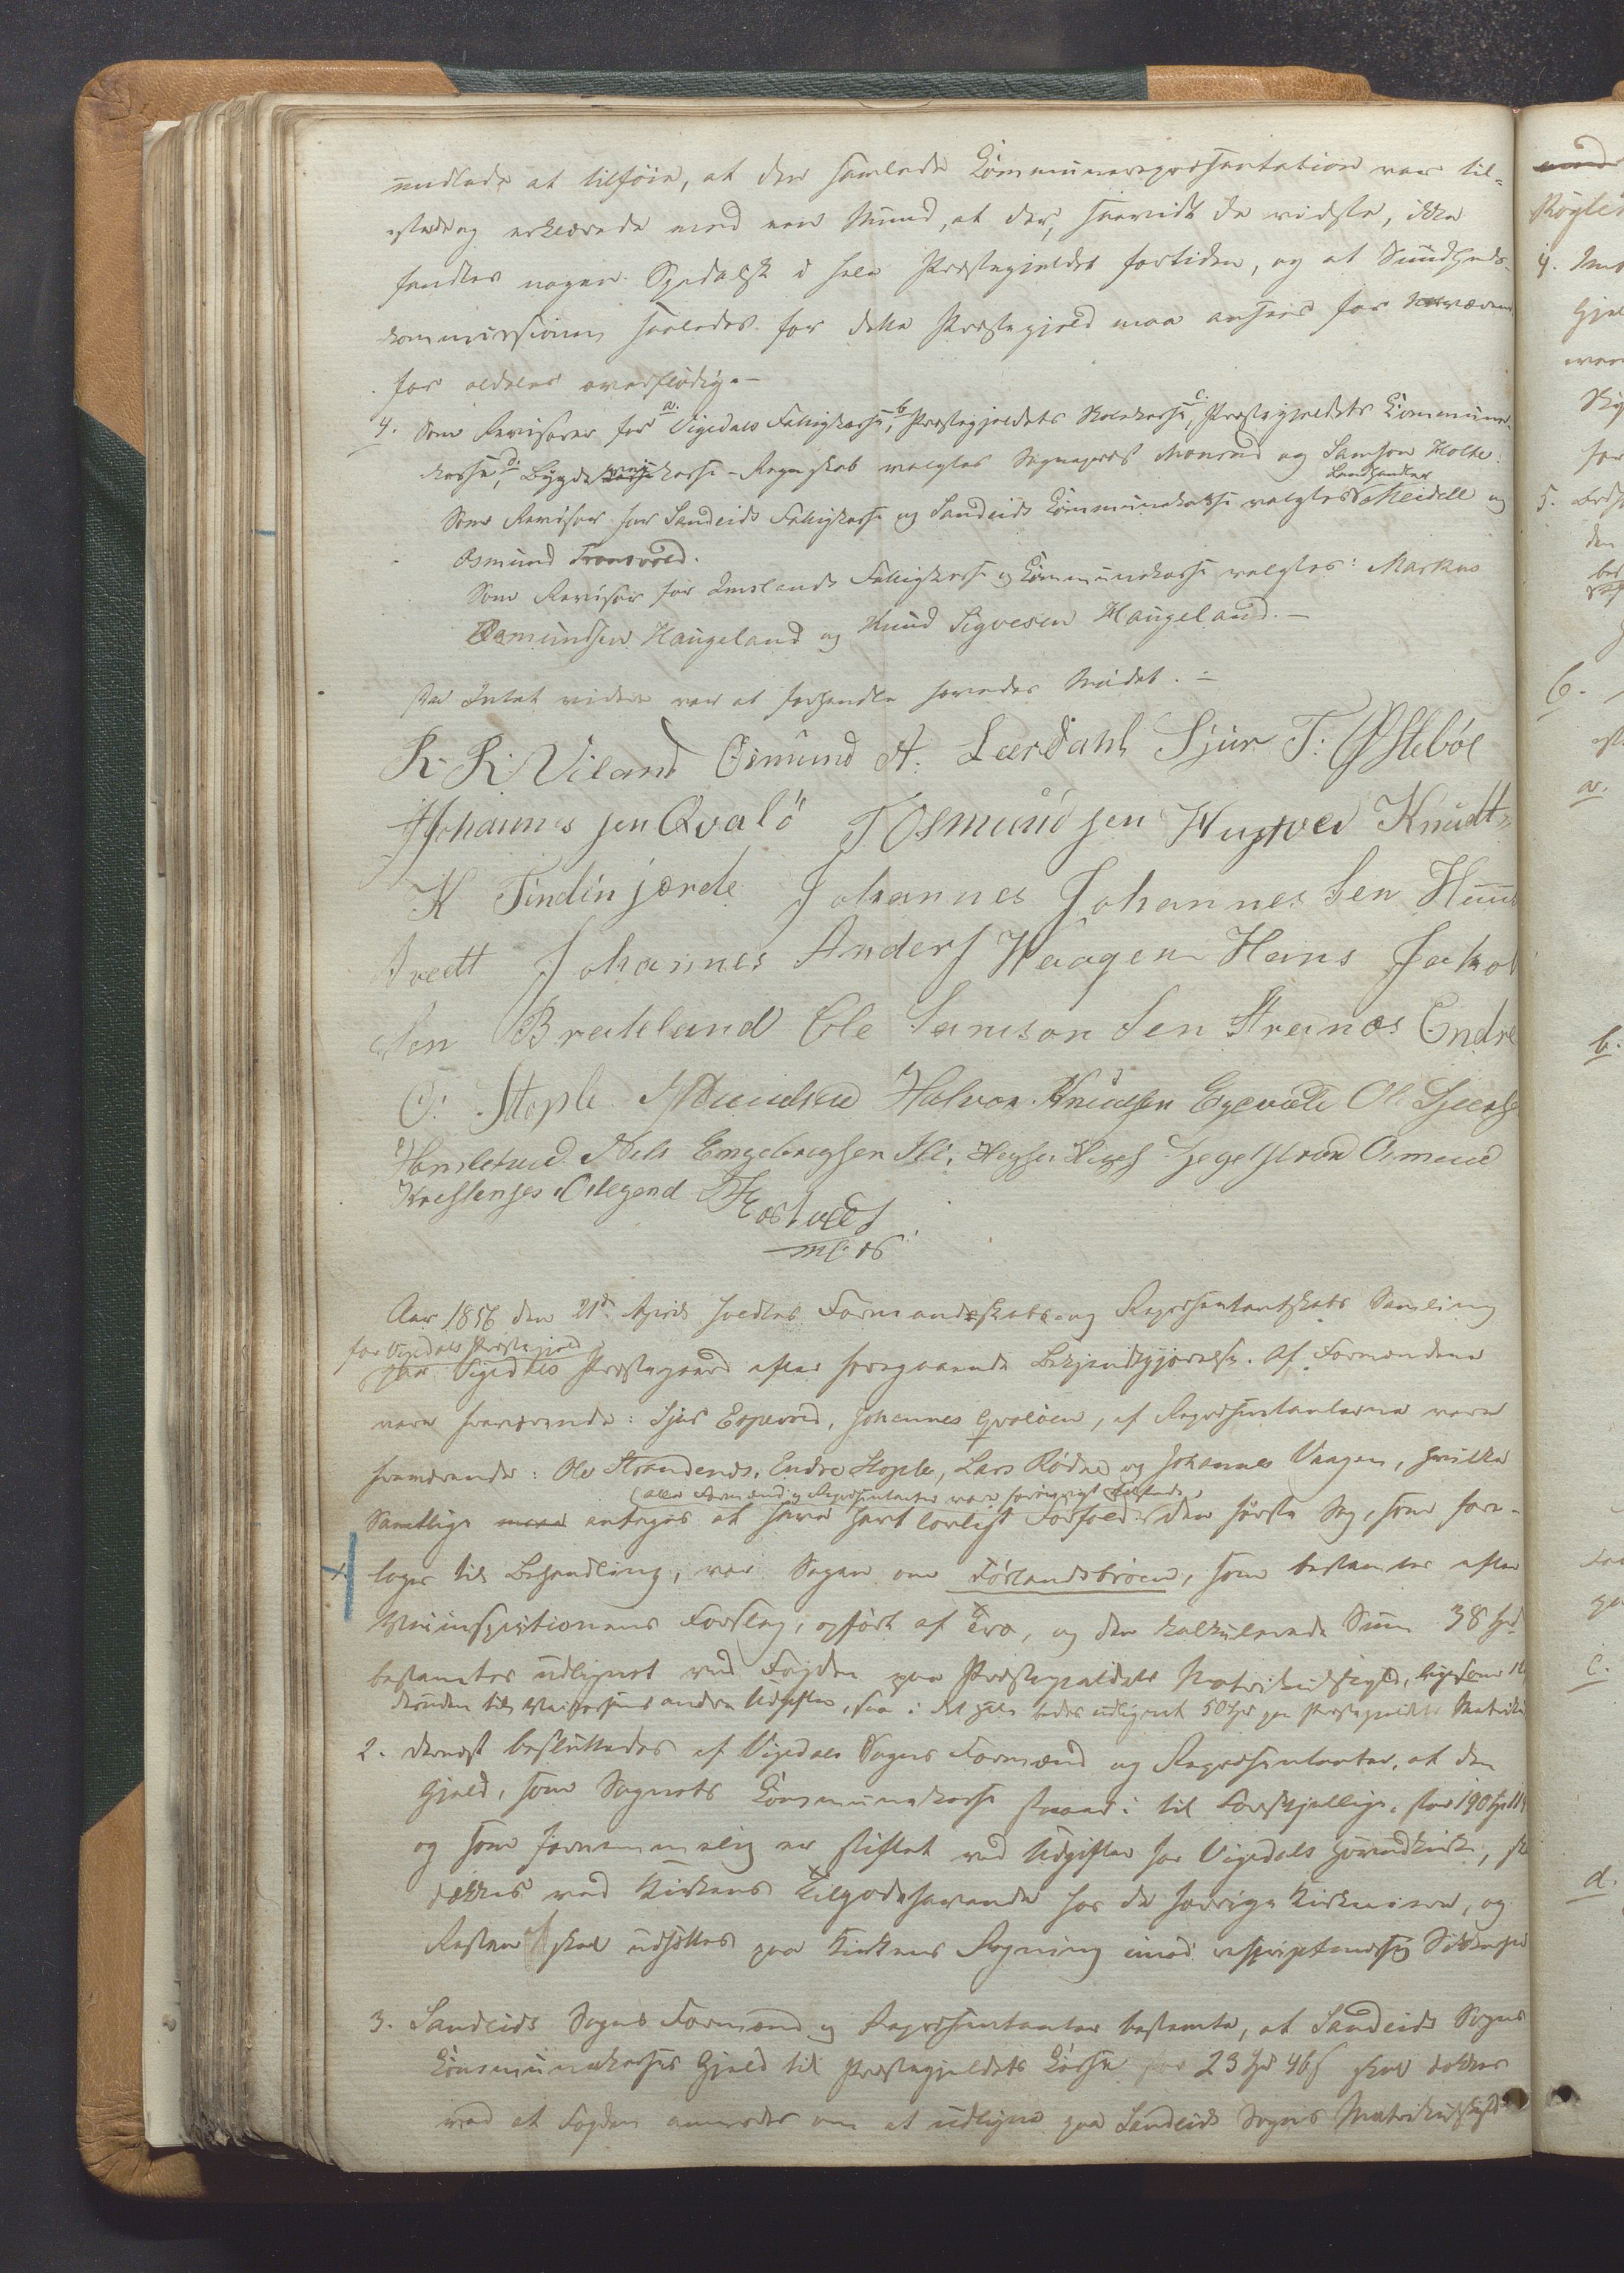 undlade at tilføie, at den samlede Kommunerepræsentation var til=
stede og erklærede med een Mund, at der, saavidt de vidste, ikke
fandtes nogen Spedalsk i hele Præstegjeldet fortiden, og at Sundheds-
kommissionen saaledes for dette Præstegjeld maa ansees for nærværende
for aldeles overflødig.-
4. Som Revisorer for a. Vigedals Fattigkasse, b. Præstegjeldets Skolekasse, c. Præstegjeldets Kommune-
kasse, d. Bygde kasse-Regnskab valgtes Sogneprest Monrad og Samson Holte.
Som Revisor for Sandeids Fattigkasse og Sandeids Kommunekasse valgtes Landhandler Meidell og
Osmund Tronsvold.
Som Revisor for Imslands Fattigkasse og Kommunekasse valgtes: Markus
Osmundsen Haugeland og Knud Sigvesen Haugeland.-
Da Intet videre var at forhandle hævedes Mødet.-
K. K. Viland Osmund A. Lærdahl Sjur T. Østebøe
Johannes sen Qvalö T Osmundsen Hustved Knudt=
K Tindinjorde Johannes Johannes Sen Hund
tvedt Johannes Anders Vaagen Hans Jakob
Sen Brekeland Ole Samson Sen Stranes Endre
O. Stople Halvor Knudsen Egevold Ol Sjursen
Nels Engebregsen Osmund
Krestensen
Aar 1856 den 21de April holdtes Formandskabs- og Repræsentantskabs Samling
for Vigedals Præstegjeld
paa Vigedals Præstegaard efter foregaaende Bekjendtgjørelse. Af Formændene
vare fraværende: Sjur Espevold, Johannes Qvaløen, af Repræsentanterne vare
fraværende: Ole Strandenæs, Endre Stople, Lars Rødne og Johannes Vaagen, hvilke
(alle Formænd og Repræsentanter vare forøvrigt tilstede)
Samtlige antages at have havt lovligt Forfald. Den første Sag, som fore-
toges til Behandling, var Sagen om Førlandsbroen, som bestemtes efter
Veiinspectionens Forslag, opført af Træ, og den kalkulerede Sum 38 Spd
bestemtes udlignet ved Fogden paa Præstegjeldets Matrikulskyld, ligesom
desuden til Veivæsenets andre Udgifter, saa i det Hele bedes udlignet 50 Spd paa Præstegjeldets Matrikul
2. dernæst besluttedes af Vigedals Sogns Formænd og Repræsentanter, at den
Gjeld, som Sognets Kommunekasse staaer i til Forskjellige, stor 190 Spd
og som fornemmelig er stiftet ved Udgifter for Vigedals Hovedkirke,
dækkes ved Kirkens Tilgodehavende hos de forrige Kirkeeiere, og
Resten skal udsættes paa Kirkens Regning imod reskriptmæssig Sikkerhed
3. Sandeids Sogns Formænd og Repræsentanter bestemte, at Sandeids Sogns
Kommunekasses Gjeld til Præstegjeldets Kasse stor 23 Spd 46 s skal dækkes
ved at Fogden anmodes om at udligne paa Sandeids Sogns Matrikulskyld